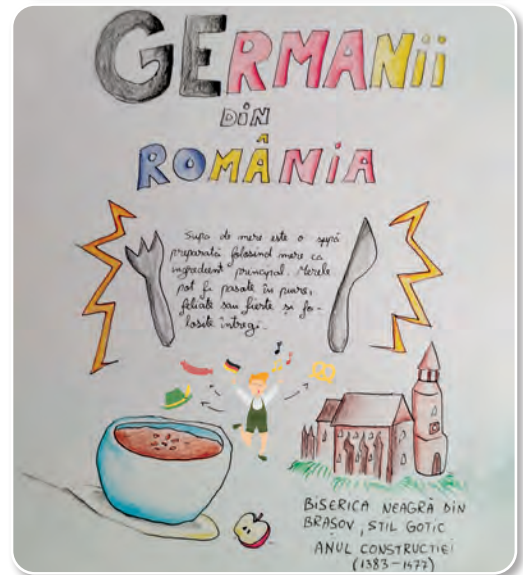 GERMANII
DIN
ROMÂNIA
Supa de mere este o supă
preparată folosind mere ca
ingredient principal. Merele
pot fi pasate în piure,
feliate sau fierte și fo-
losite întregi.
BISERICA NEAGRĂ DIN
BRAȘOV, STIL GOTIC
ANUL CONSTRUCȚIEI
(1383-1477)